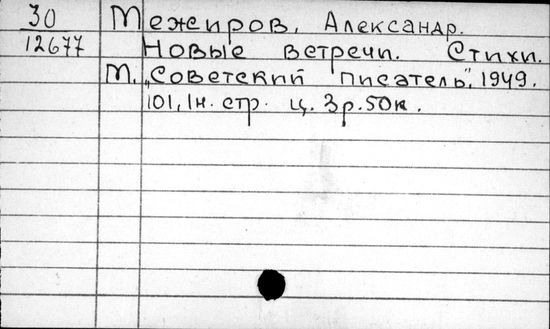 30 Межиров, Александр.
12677 Новые встречи. Стихи.
М. „Советский писатель", 1949.
101, 1н. стр. ц. 3р. 50к.